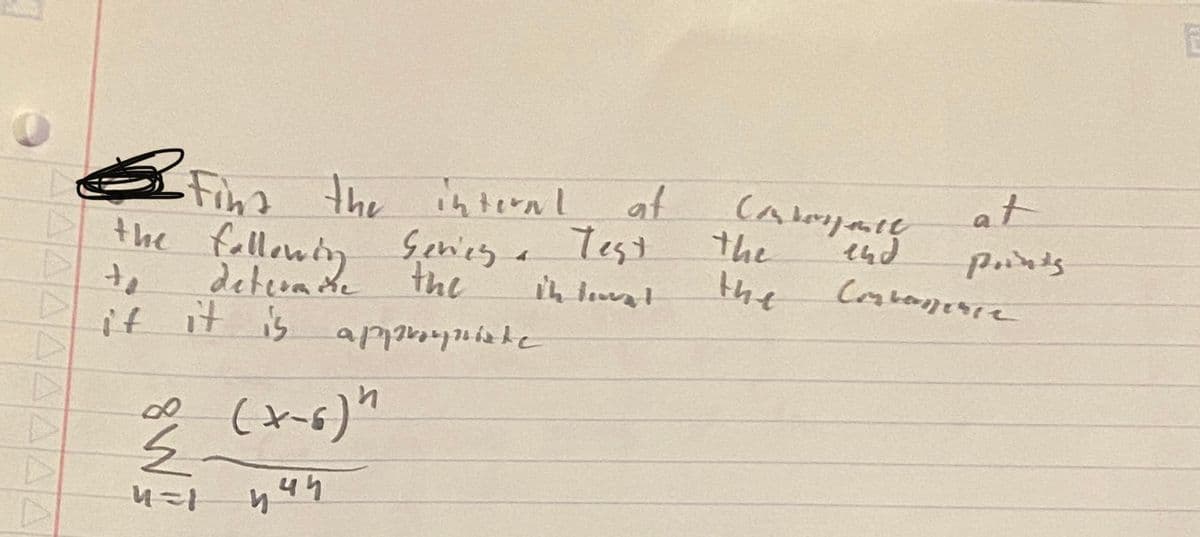 Find the interval of Convergence at
the following Series. Test the end points
to determine the interval the Convergence
if it is appropriate
∞ (x-6)^n
Σ
n=1 n^4n